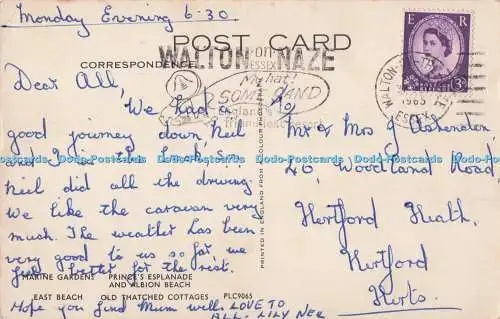 Monday Evening 6-30
POST CARD
WALTON-ON-NAZE
ESSEX
CORRESPONDENCE
My hat!
SOME SAND
E R
3D
WALTON-ON-THE
1965
ESSEX
Dear All,
We had a
good journey down, neil
neil did all the driving.
We like the caravan very
much. The weather has been
very good to us so far we
feel better for the rest.
Hope you find Mum well. LOVE TO
ALL. LILY NEE
To
Mr & Mrs J Ashendon
20, Woodland Road,
Hertford Heath,
Hertford
Herts.
PRINTED IN ENGLAND FROM A COLOUR PHOTOGRAPH
MARINE GARDENS PRINCE'S ESPLANADE
AND ALBION BEACH
EAST BEACH OLD THATCHED COTTAGES PLC9065
Dodo-Postcards